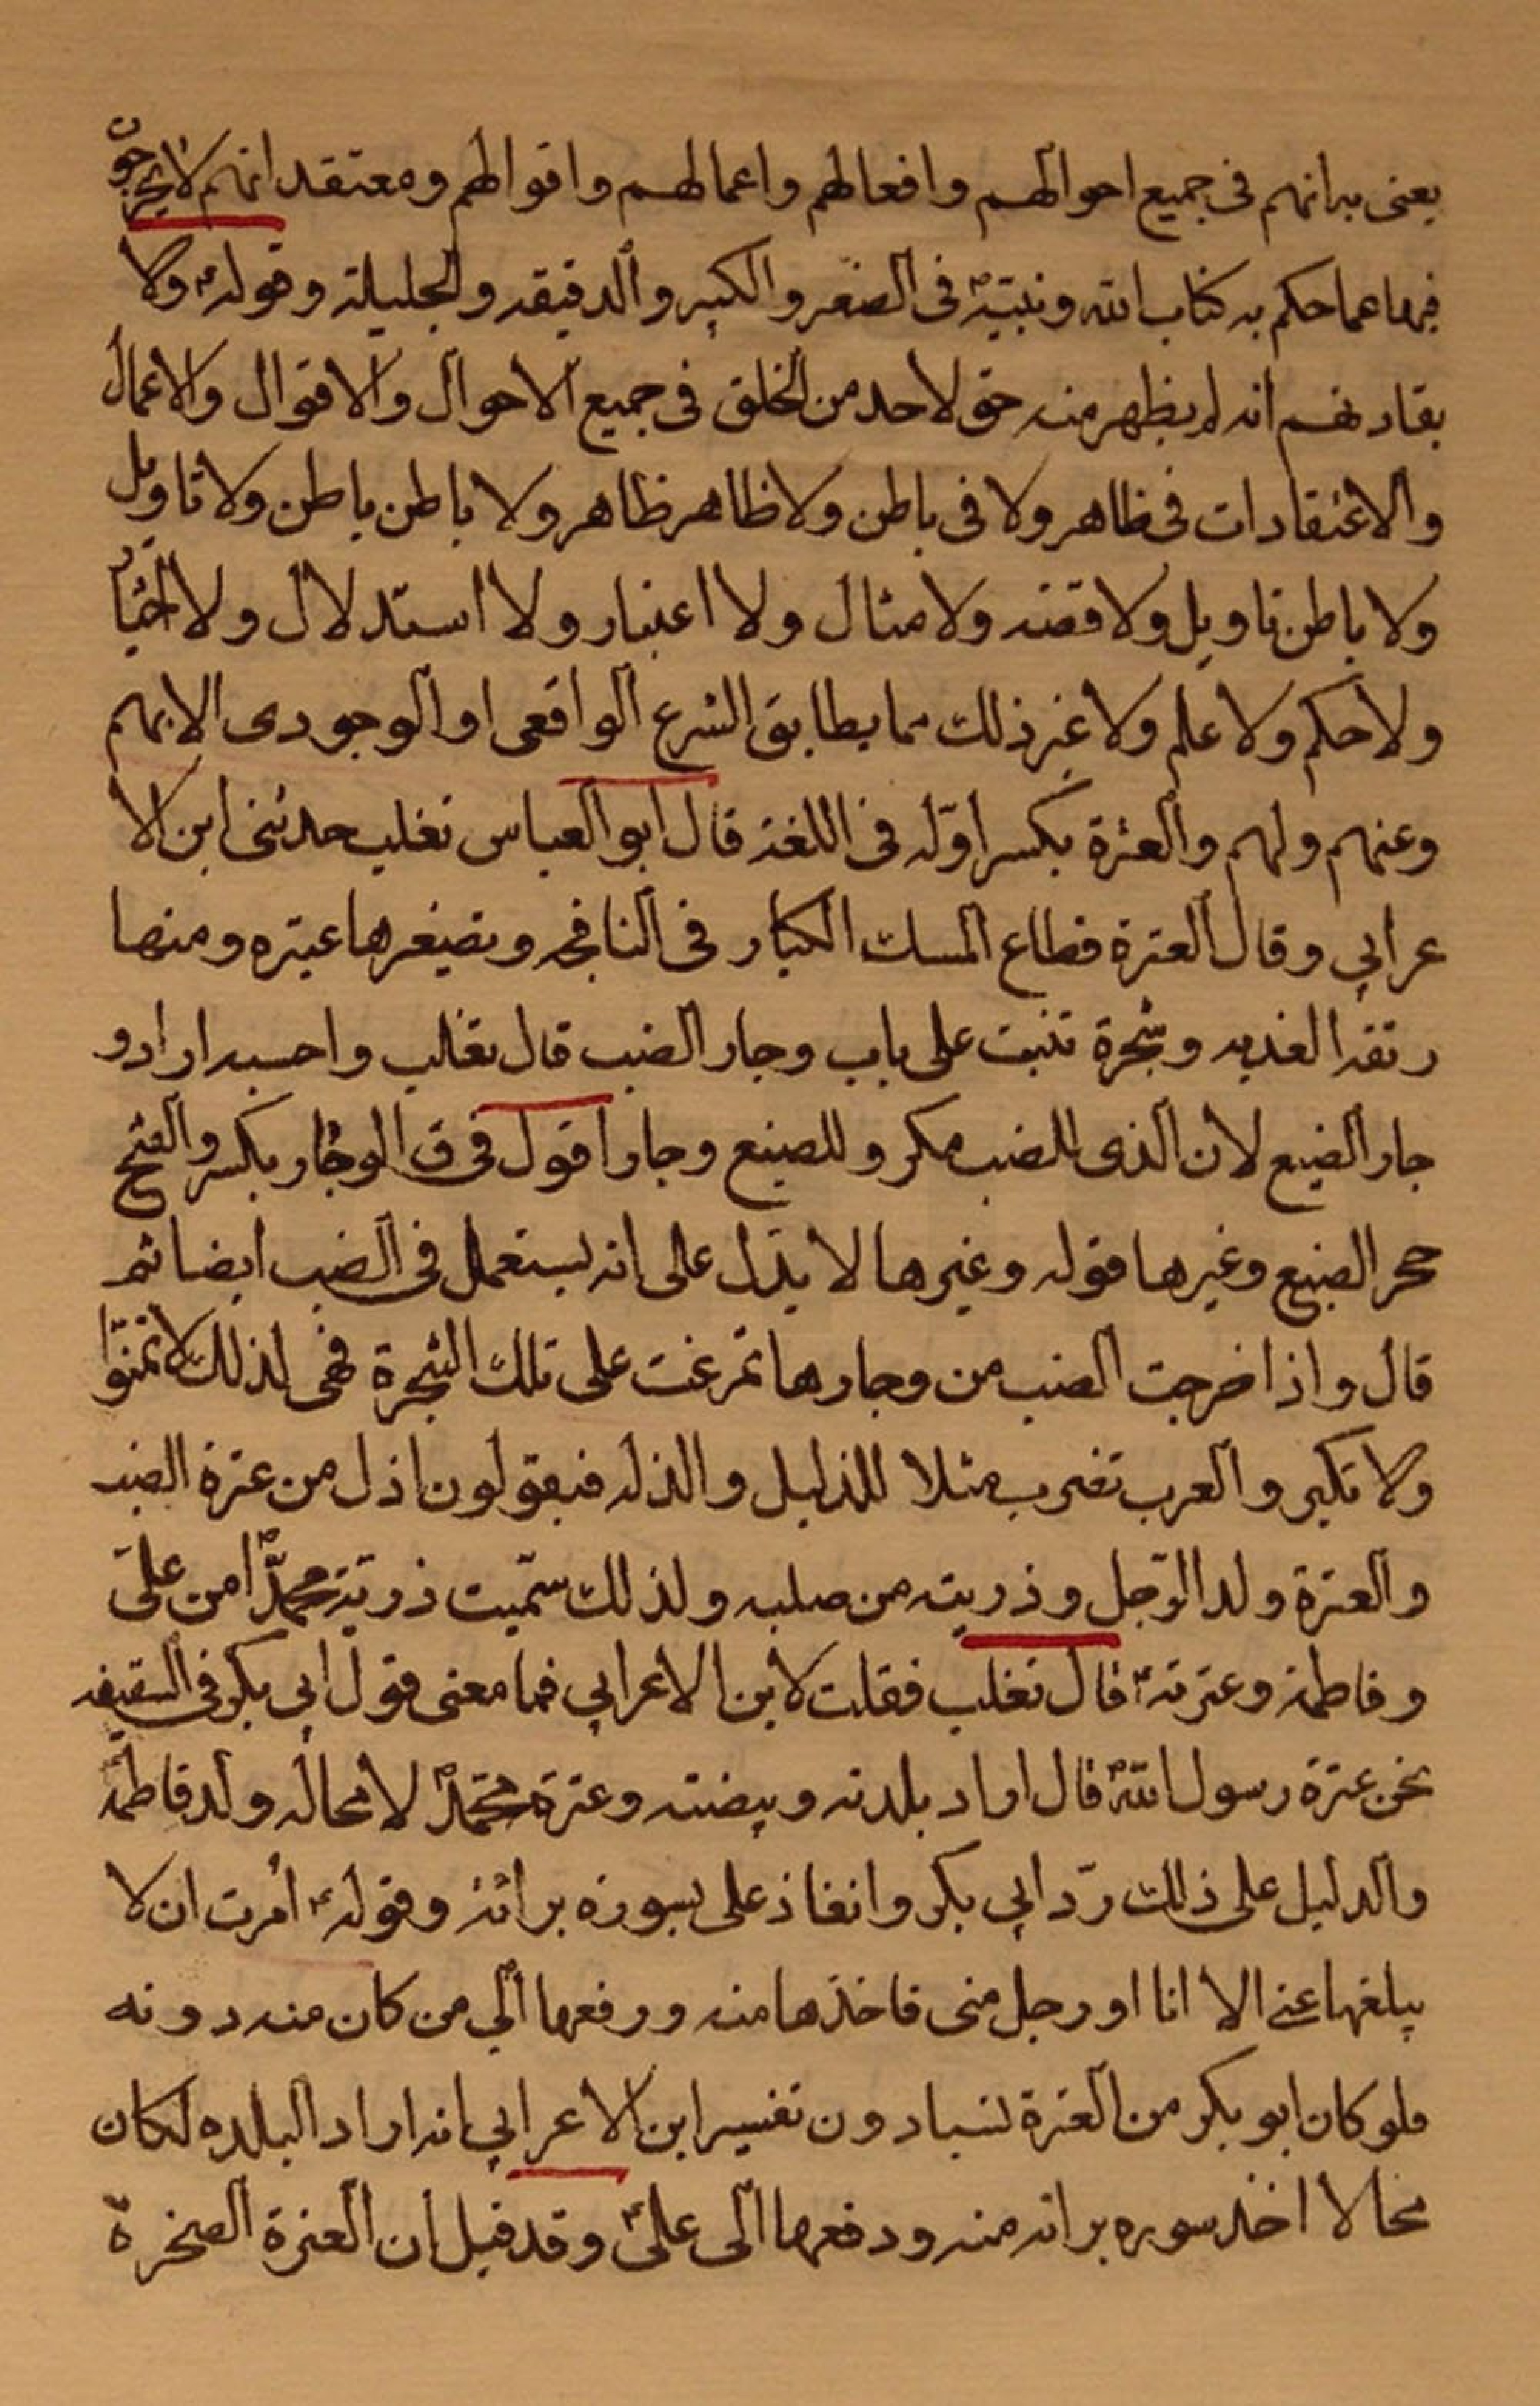 يعنى به انهم فى جميع احوالهم وافعالهم واعمالهم واقوالهم ومعتقد انهم لا يخرجون
فيها عما حكم به كتاب الله ونبيّه ص فى الصغير والكبير والدقيقه والجليلة وقوله ع ولا
بقاد نهم انه لم يظهر منه حق لاحد من الخلق فى جميع الاحوال والاقوال والاعمال
والاعتقادات فى ظاهر ولا فى باطن ولا ظاهر ظاهر ولا باطن باطن ولا تاويل
ولا باطن تاويل ولا قصّه ولا مثال ولا اعتبار ولا استدلال ولا اخبار
ولا حكم ولا علم ولا غير ذلك مما يطابق الشرع الواقعى او الوجودى الا بهم
وعنهم ولهم والعترة بكسر اوّله فى اللغة قال ابو العباس تغلب حدثنى ابن الا
عرابي وقال العترة قطاع المسك الكبار فى النافجه وتصغيرها عتيره ومنها
ريقه العذبه وشجرة تنبت على باب وجار الضب قال تغلب واحسبه اراد و
جار الضبع لان الذى للضب مكر وللضبع وجار اقول فى ق الوجار بكسر والفتح
حجر الضبع وغيرها قوله وغيرها لا يدل على انه يستعمل فى الضب ايضا ثم
قال واذا خرجت الضب من وجارها تمرغت على تلك الشجرة فهى لذلك لا تمنوا
ولا تكبر والعرب تضرب مثلا للذليل والذله فيقولون اذل من عترة الضب
والعترة ولد الرّجل وذريته من صلبه ولذلك سمّيت ذرية محمّد ص من علىّ
وفاطمة وعترته ع قال تغلب فقلت لابن الاعرابي فما معنى قول ابي بكر فى السقيفه
نحن عترة رسول الله ص قال اراد بلدته وبيضته وعترة محمّد ص لا محاله ولد فاطمة
والدليل على ذلك ردّ ابي بكر وانفاذ على بسورة برائة وقوله ع اُمرت ان لا
يبلغها عنى الا انا او رجل منى فاخذها منه ودفعها الي من كان منه دونه
فلو كان ابو بكر من العترة نسبا دون تفسير ابن الاعرابي انه اراد البلده لكان
محالا اخذ سوره برائه منه ودفعها الى علىّ ع وقد قيل ان العترة الصخرة